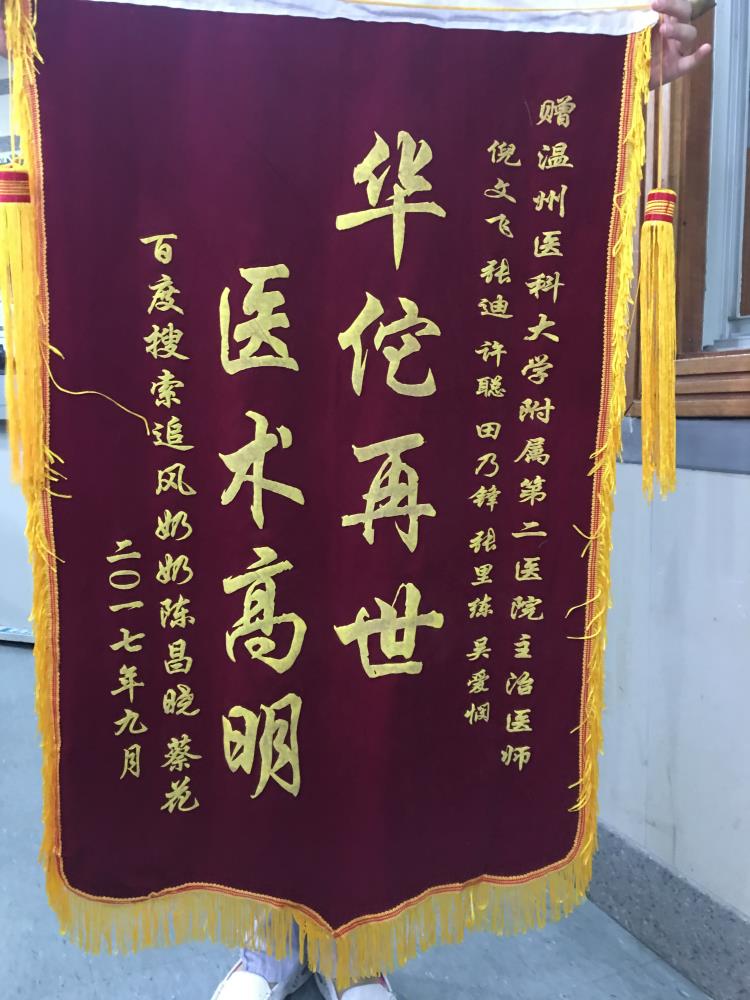 赠温州医科大学附属第二医院主治医师
倪文飞 张迪 许聪 田乃锋 张里练 吴爱悯
华佗再世
医术高明
百度搜索追风奶奶陈昌晓 蔡花
二〇一七年九月